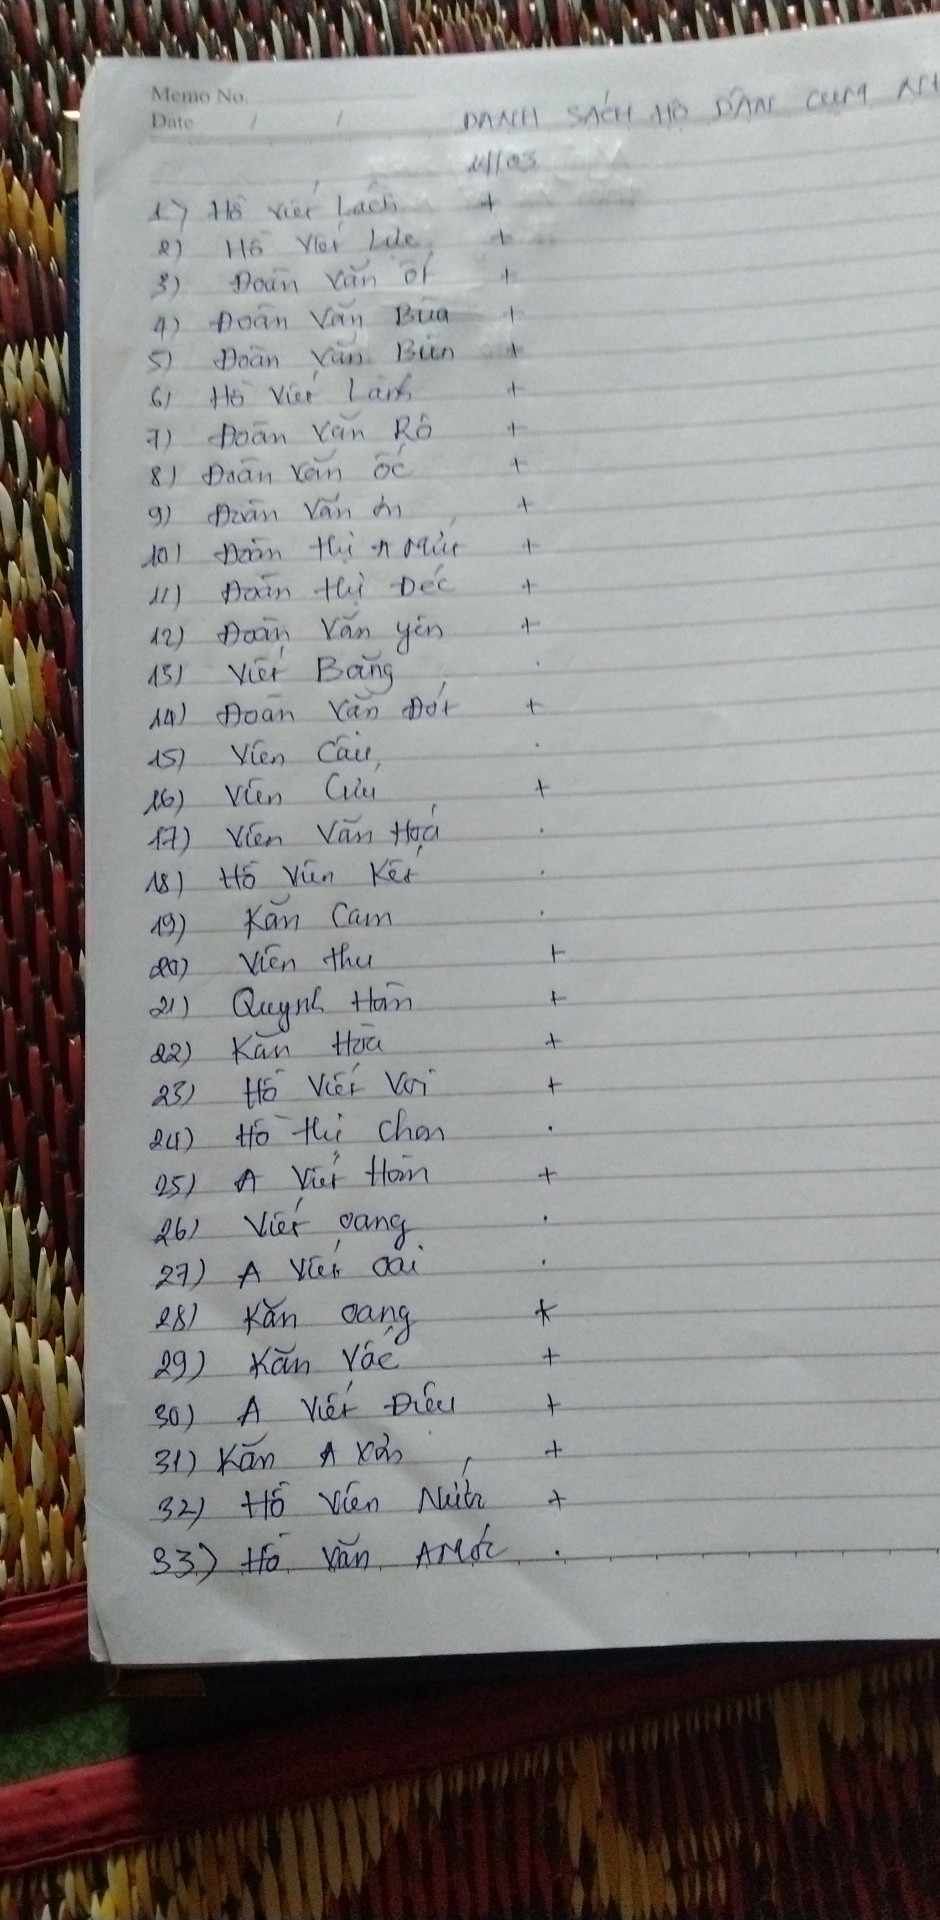 Memo No.
Date / /
DANH SÁCH HỘ DÂN CỤM
14/03
1) Hồ Viết Lách +
2) Hồ Viết Lực +
3) Đoàn Văn ốt +
4) Đoàn Văn Bùa +
5) Đoàn Văn Bùn +
6) Hồ Viết Lành +
7) Đoàn Văn Rô +
8) Đoàn Văn ốc +
9) Đoàn Văn ổn +
10) Đoàn thị A Mứt +
11) Đoàn thị Déc +
12) Đoàn Văn yên +
13) Viết Băng .
14) Đoàn Văn Đót +
15) Viên Câu .
16) Viên Cừu +
17) Viên Văn Hoá .
18) Hồ Viên Kết .
19) Kăn Cam .
20) Viên thu +
21) Quỳnh Hơn +
22) Kăn Hoà +
23) Hồ Viết Vơi +
24) Hồ thị Chơn .
25) A Viết Hơn +
26) Viết oang .
27) A Viết oai .
28) Kăn oang +
29) Kăn Vác +
30) A Viết Điếu +
31) Kăn A +
32) Hồ Viên +
33) Hồ Văn AMốc .